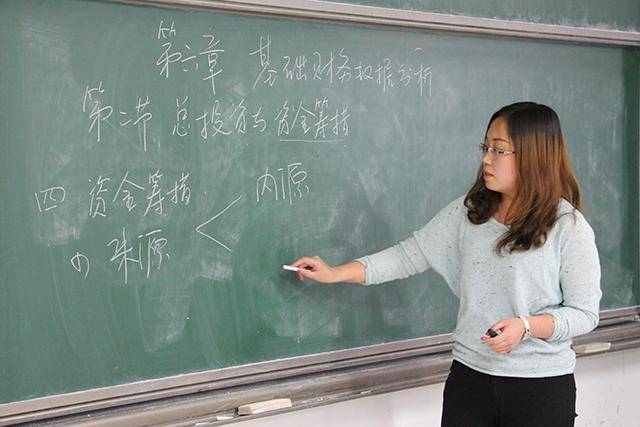 第六章 基础财务数据分析
第二节 总投资与资金筹措
四 资金筹措
内源
源